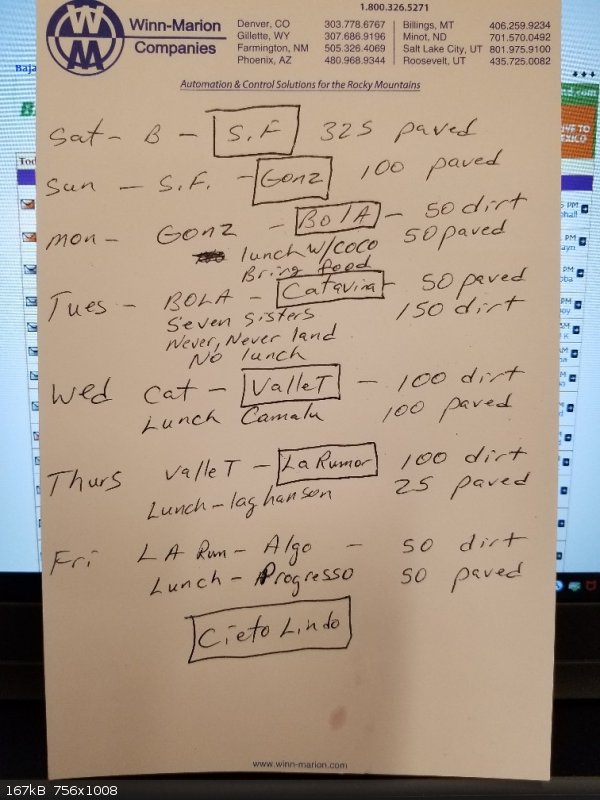 1.800.326.5271
Winn-Marion
Companies
Denver, CO 303.778.6767
Gillette, WY 307.686.9196
Farmington, NM 505.326.4069
Phoenix, AZ 480.968.9344
Billings, MT 406.259.9234
Minot, ND 701.570.0492
Salt Lake City, UT 801.975.9100
Roosevelt, UT 435.725.0082
Automation & Control Solutions for the Rocky Mountains
Sat - B - S.F 325 paved
Sun - S.F. - Gonz 100 paved
Mon - Gonz - BolA - 50 dirt
lunch w/coco 50 paved
Bring food
Tues - BOLA - Catavina 50 paved
Seven Sisters 150 dirt
Never, Never land
No lunch
Wed Cat - ValleT - 100 dirt
Lunch Camalu 100 paved
Thurs ValleT - LaRumor 100 dirt
Lunch - laghanson 25 paved
Fri LA Rum - Algo - 50 dirt
Lunch - Progresso 50 paved
Cieto Lindo
www.winn-marion.com
167kB 756x1008